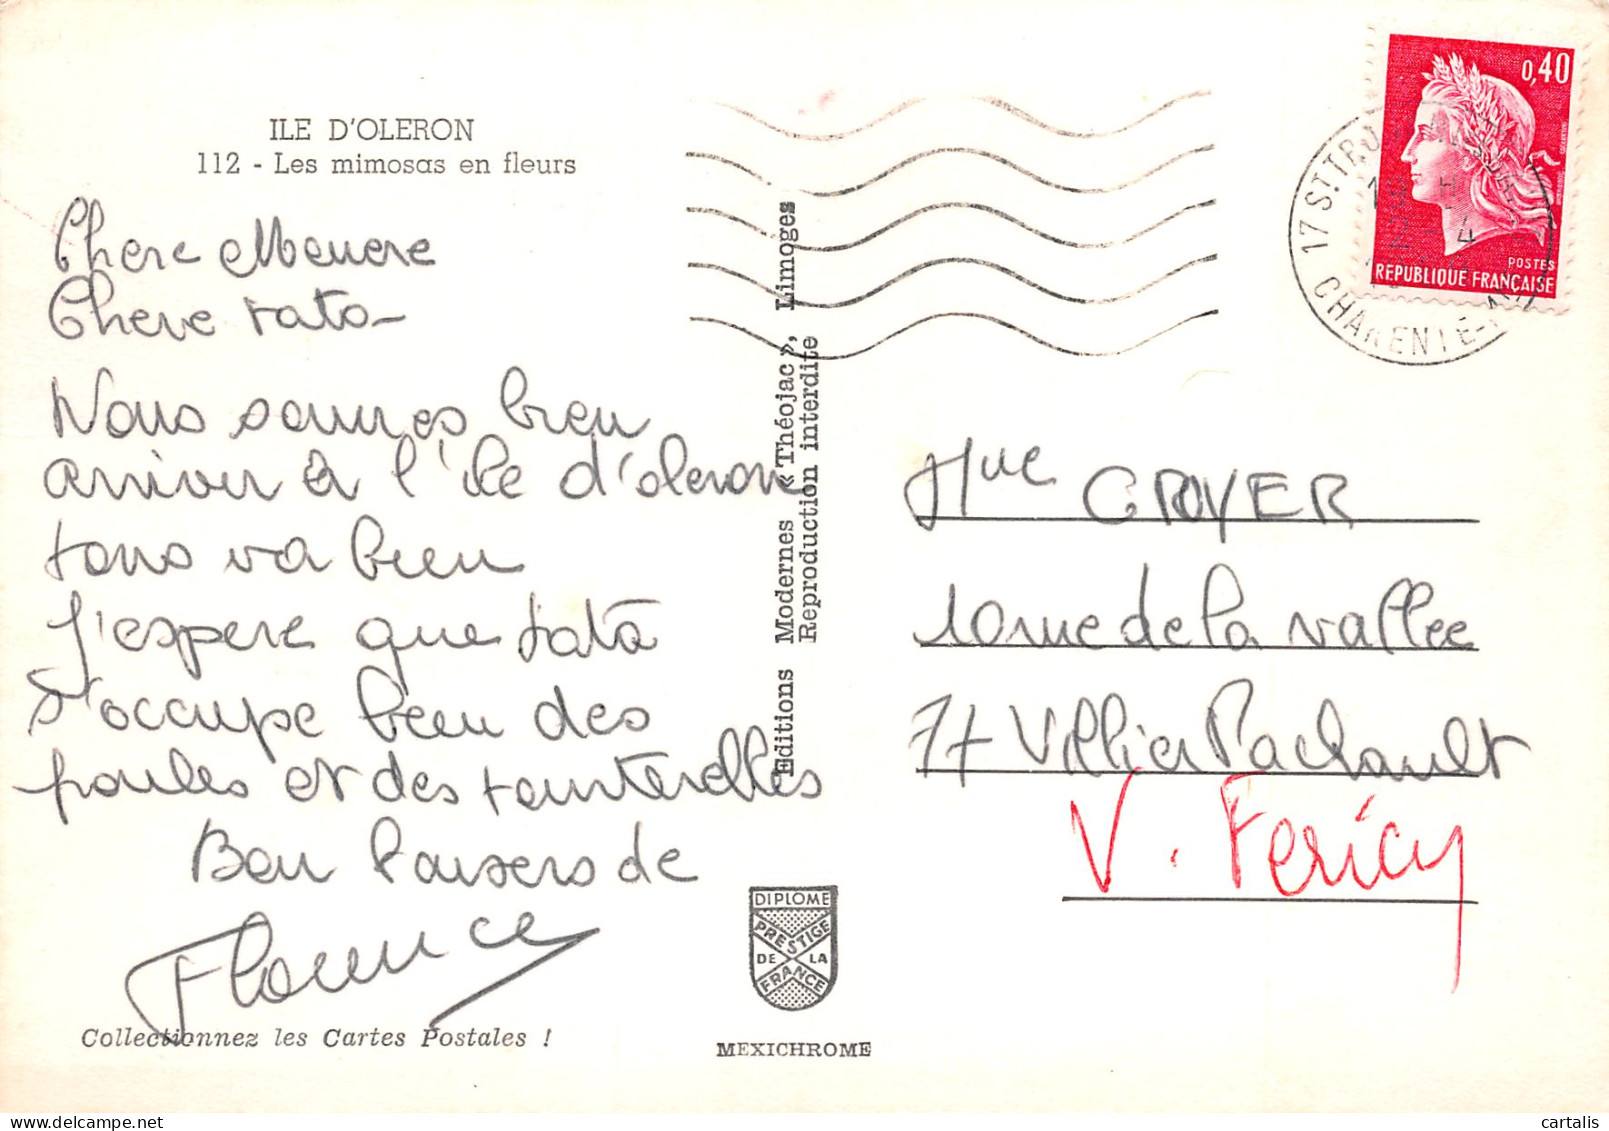 ILE D'OLERON
112 - Les mimosas en fleurs
Chere Memere
Chere tata
Nous sommes bien
arriver à l'ile d'oleron
tous va bien
J'espere que tata
s'occupe bien des
poules et des tourterelles
Bon baisers de
Florence
Collectionnez les Cartes Postales !
Editions Modernes « Théojac », Limoges
Reproduction interdite
DIPLOME
PRESTIGE
DE LA
FRANCE
MEXICHROME
0,40
POSTES
REPUBLIQUE FRANÇAISE
17 ST TRO
CHARENTE-
Mme GROYER
10 rue de la vallee
77 Villier
V. Fericy
cartalis